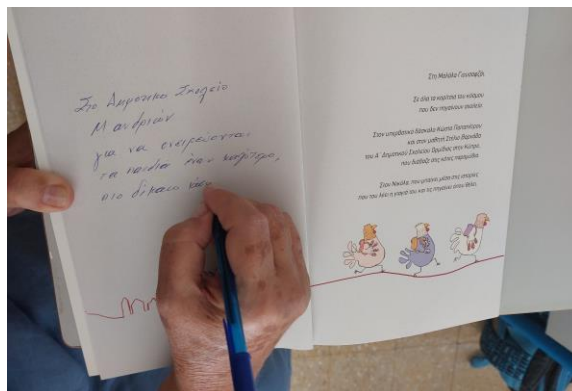 Στο Δημοτικό Σχολείο
Μανδριών
για να ονειρεύονται
τα παιδιά έναν καλύτερο,
πιο δίκαιο
Στη Μαλάλα Γιουσαφζάι
Σε όλα τα κορίτσια του κόσμου
που δεν πηγαίνουν σχολείο.
Στον υπερβατικό δάσκαλο Κώστα Παπαντώνη
και στον μαθητή Στέλιο Βαρνάβα
του Α΄ Δημοτικού Σχολείου Ορμίδειας στην Κύπρο,
που διάβαζε στις κότες παραμύθια.
Στον Νικόλα, που μπαίνει μέσα στις ιστορίες
που του λέει η γιαγιά του και τις πηγαίνει όπου θέλει.